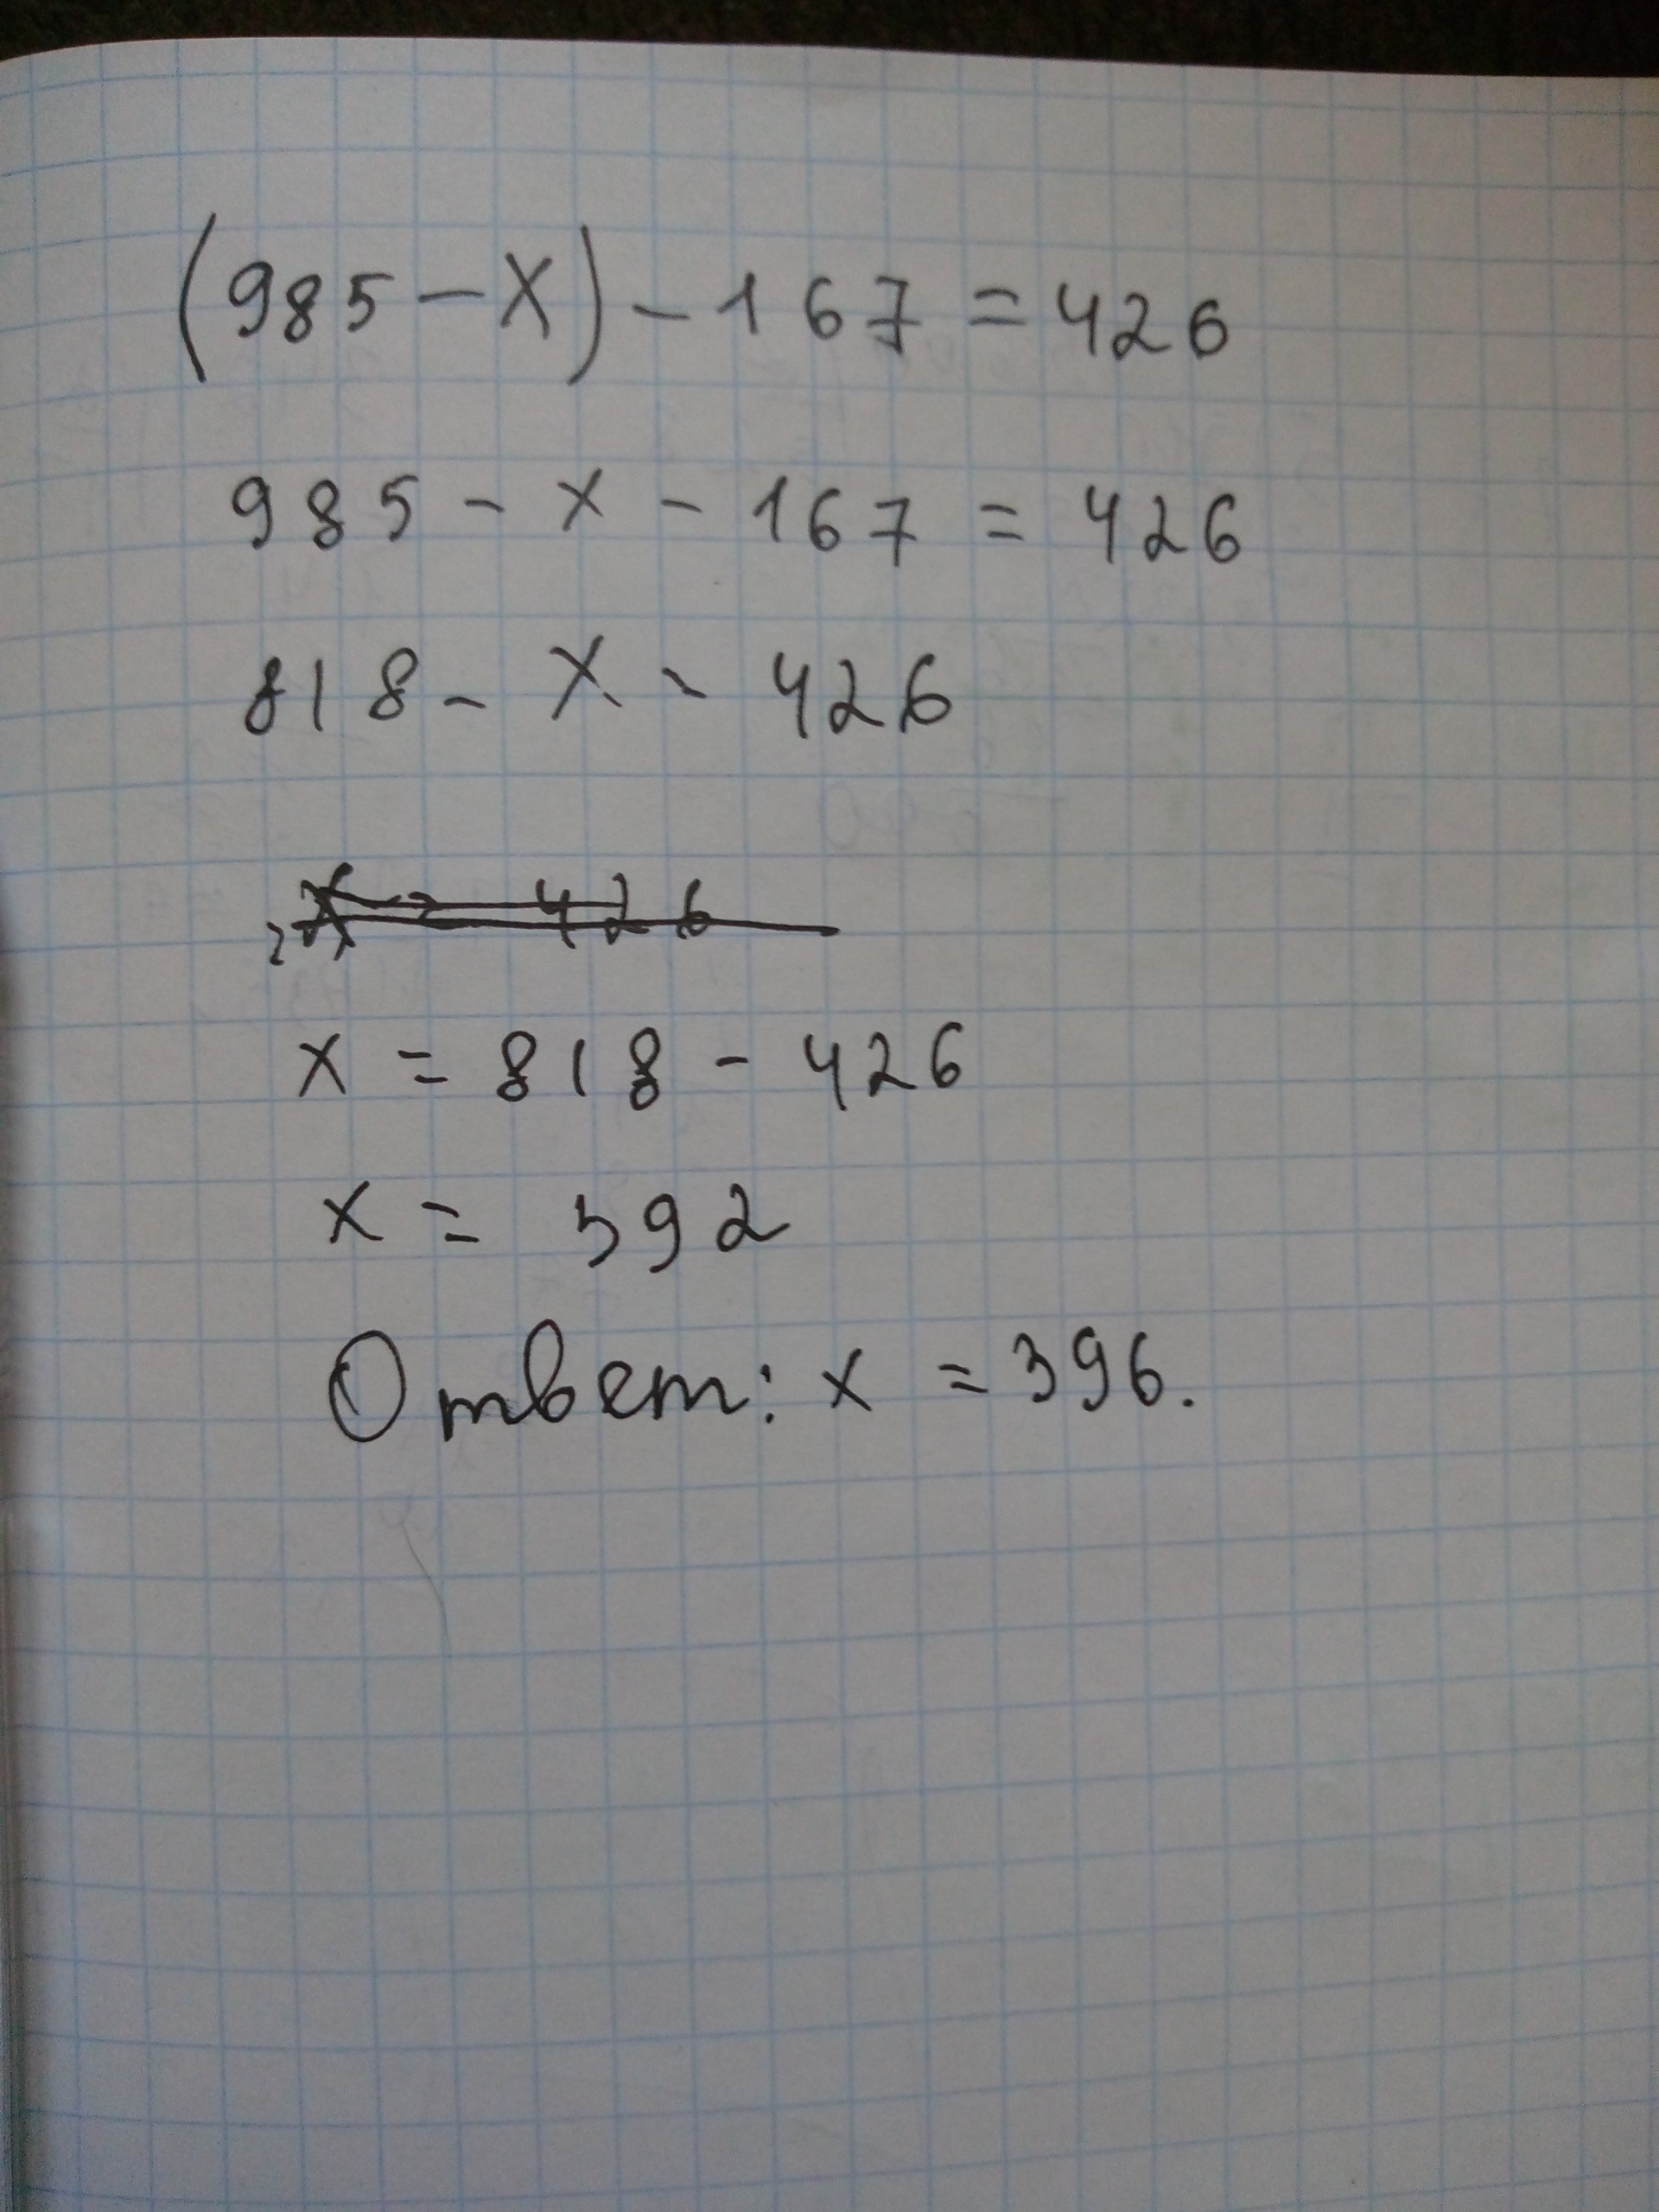 (985 - x) - 167 = 426
985 - x - 167 = 426
818 - x - 426
x = 426
x = 818 - 426
x = 392
Ответ: x = 396.